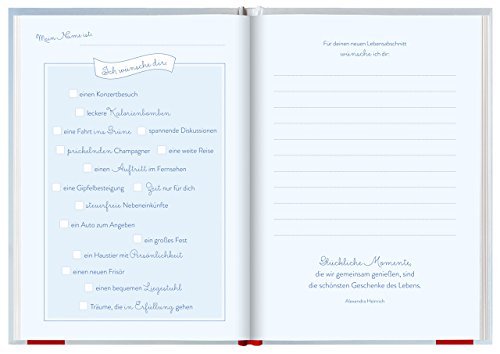 Mein Name ist:
Ich wünsche dir:
einen Konzertbesuch
leckere Kalorienbomben
eine Fahrt ins Grüne spannende Diskussionen
prickelnden Champagner eine weite Reise
einen Auftritt im Fernsehen
eine Gipfelbesteigung Zeit nur für dich
steuerfreie Nebeneinkünfte
ein Auto zum Angeben
ein großes Fest
ein Haustier mit Persönlichkeit
einen neuen Frisör
einen bequemen Liegestuhl
Träume, die in Erfüllung gehen
Für deinen neuen Lebensabschnitt
wünsche ich dir:
Glückliche Momente,
die wir gemeinsam genießen, sind
die schönsten Geschenke des Lebens.
Alexandra Heinrich